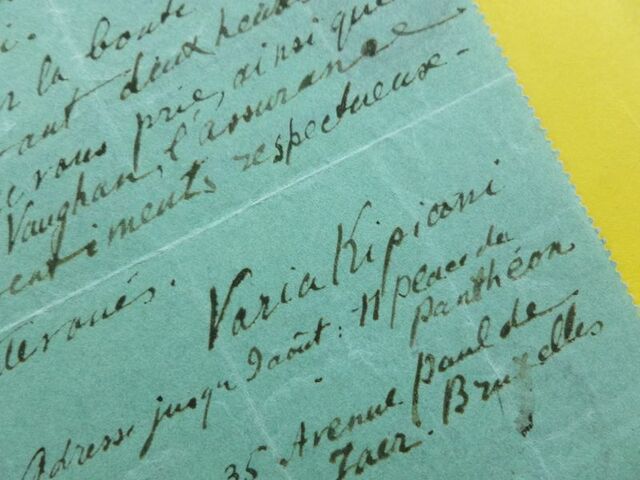 la bonté
deux heures
vous prie, ainsi que
Vaughan, l'assurance
sentiments respectueux-
dévoués.
Varia Kipiani
Adresse jusqu'9 août: 11 place du
Panthéon
35 Avenue Paul de
Jaer. Bruxelles